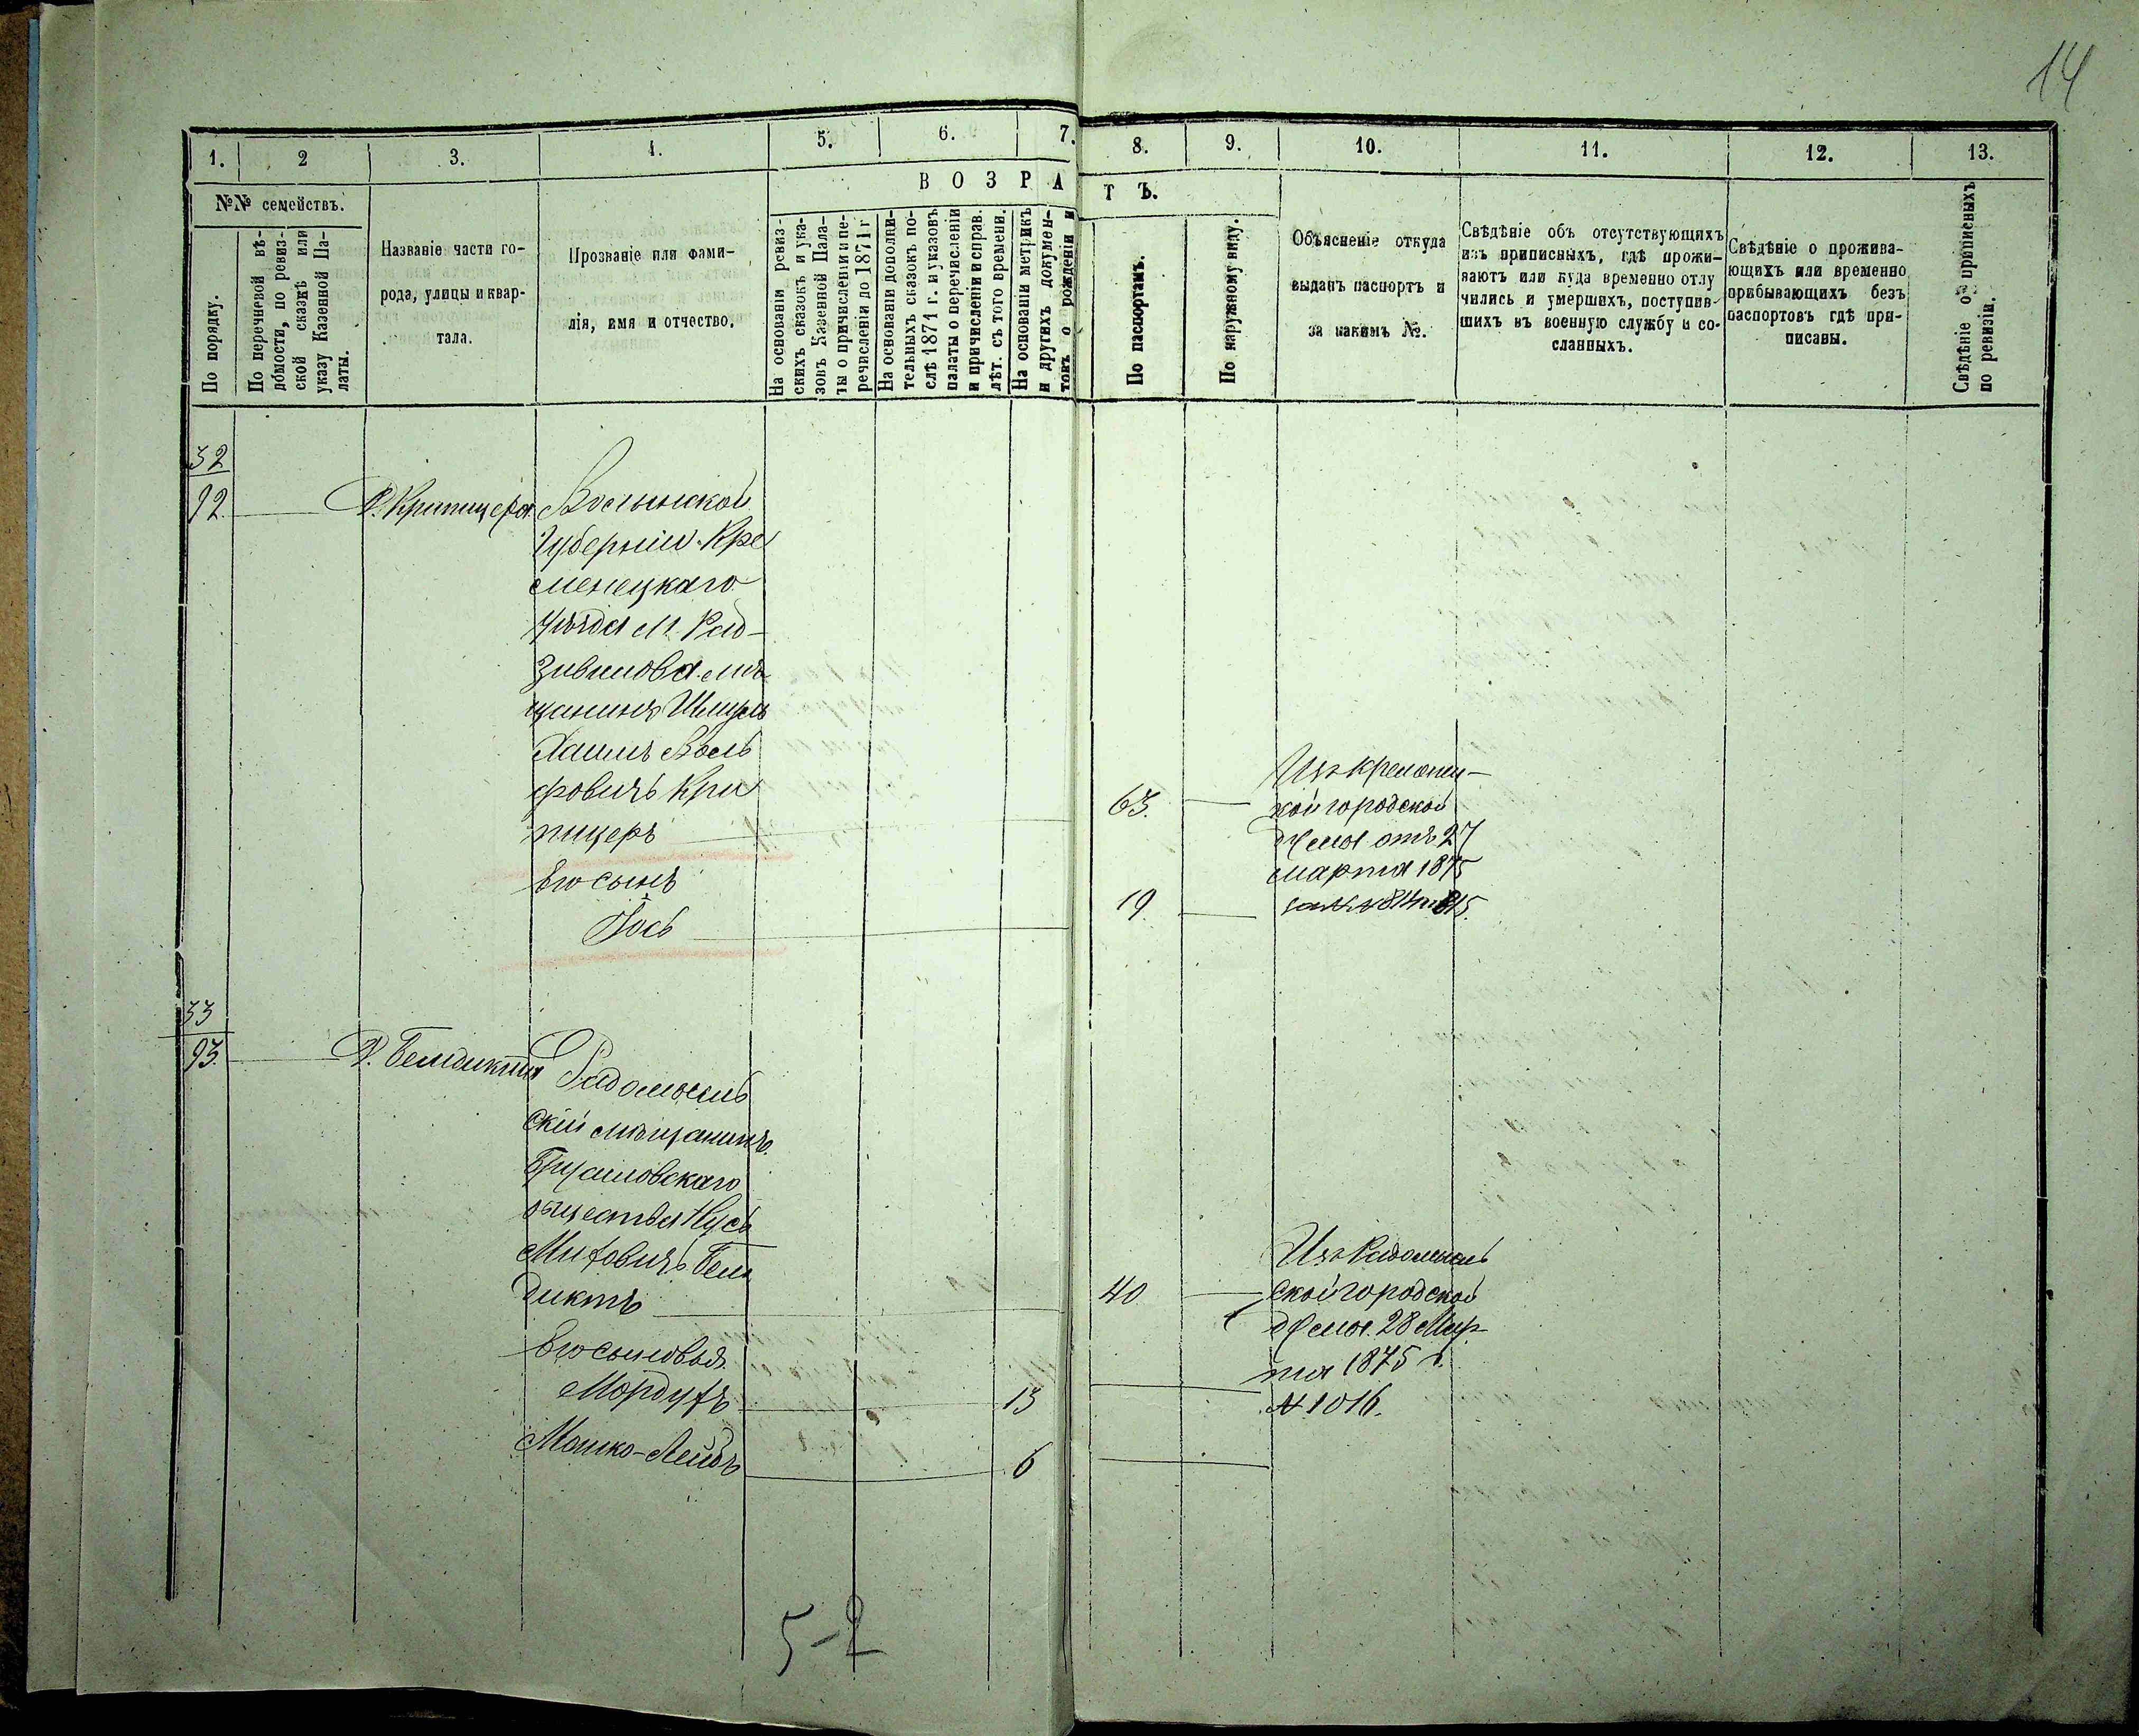 14
1. 2 3. 4. 5. 6. 7. 8. 9. 10. 11. 12. 13.
В О З Р А Т Ъ.
№№ семействъ.
По порядку.
По перечневой вѣ-
домости, по ревиз-
ской сказкѣ или
указу Казенной Па-
латы.
Названіе части го-
рода, улицы и квар-
тала.
Прозваніе или фами-
лія, имя и отчество.
На основаніи ревиз-
скихъ сказокъ и ука-
зовъ Казенной Пала-
ты о причисленіи и пе-
речисленіи до 1871 г
На основаніи дополни-
тельныхъ сказокъ по-
слѣ 1871 г. и указовъ
палаты о перечисленіи
и причисленіи и справ.
лѣт. съ того времени.
На основаніи метрикъ
и другихъ докумен-
товъ о рожденіи и
По паспортамъ.
По наружному виду.
Объясненіе откуда
выданъ паспортъ и
за какимъ №.
Свѣдѣніе объ отсутствующихъ
изъ приписныхъ, гдѣ прожи-
ваютъ или куда временно отлу
чились и умершихъ, поступив-
шихъ въ военную службу и со-
сланныхъ.
Свѣдѣніе о прожива-
ющихъ или временно
прибывающихъ безъ
паспортовъ гдѣ при-
писаны.
Свѣдѣніе о приписныхъ
по ревизіи.
32
92
Д. Крипицера
Волынской
Губерніи Кре
менецкаго
уѣзда м. Рад-
зивилова мѣ
щанинъ Шмуль
Хаимъ Воль
фовичъ Кри
пицеръ
63.
Изъ Кременец-
кой городской
Думы отъ 27
марта 1875
за №№ 814 и 815.
Его сынъ
Іось
19
33
93.
Д. Бендикта
Радомысль
скій мѣщанинъ
Брусиловскаго
общества Нусь
Миховичъ Бен
диктъ
40
Изъ Радомысль
ской городской
Думы 28 Мар
та 1875 г.
№ 1016.
Его сыновья
Мордухъ
13
Мошко-Лейбъ
6
5-2